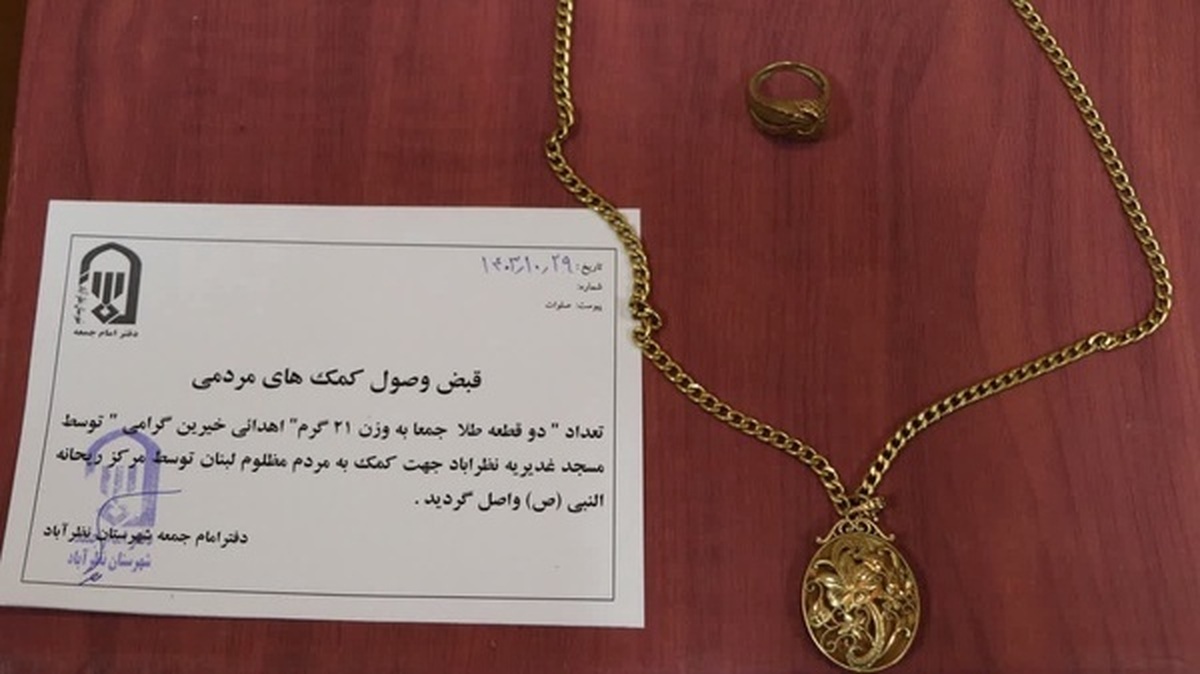 تاریخ: ۱۴۰۳/۱۰/۲۹
شماره:
پیوست: صلوات
دفتر امام جمعه
قبض وصول کمک های مردمی
تعداد " دو قطعه طلا جمعا به وزن ۲۱ گرم" اهدائی خیرین گرامی " توسط
مسجد غدیریه نظراباد جهت کمک به مردم مظلوم لبنان توسط مرکز ریحانه
النبی (ص) واصل گردید .
دفترامام جمعه شهرستان نظرآباد
شهرستان نظرآباد